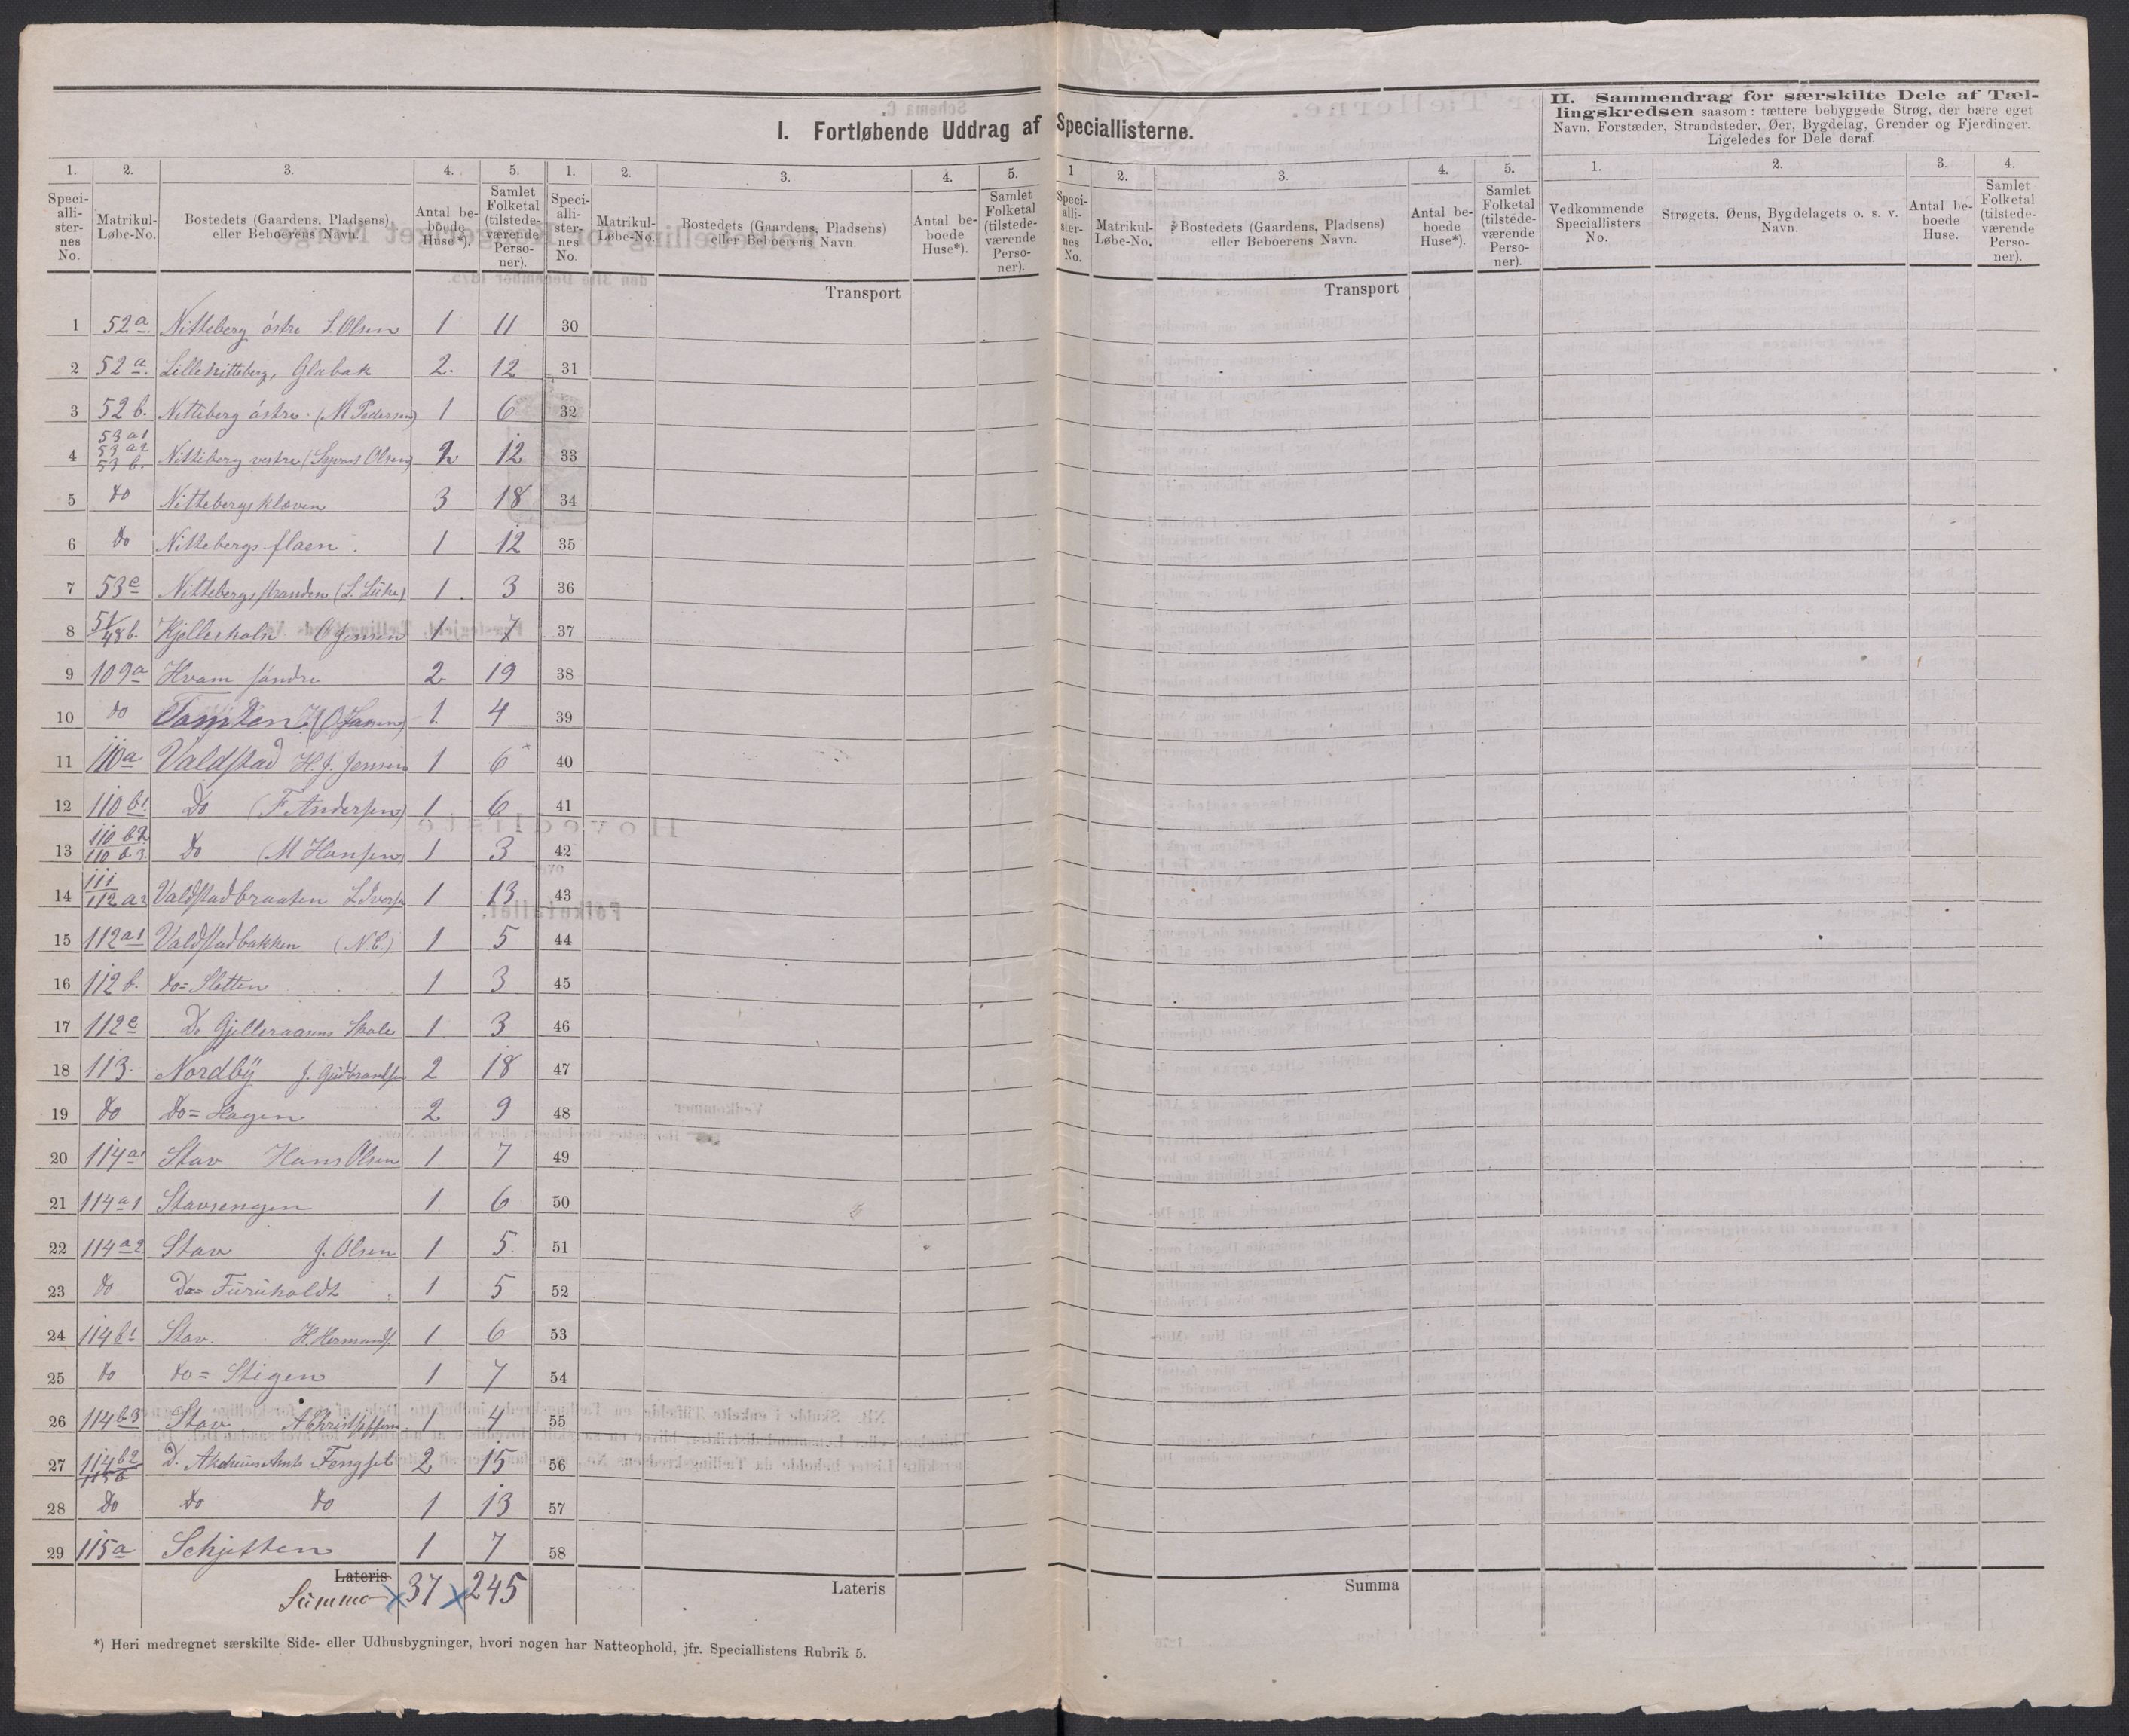 I. Fortløbende Uddrag af Speciallisterne.
II. Sammendrag for særskilte Dele af Tæl-
lingskredsen saasom: tættere bebyggede Strøg, der bære eget
Navn, Forstæder, Strandsteder, Øer, Bygdelag, Grender og Fjerdinger.
Ligeledes for Dele deraf.
1. 2. 3. 4. 5. 1. 2. 3. 4. 5. 1 2. 3. 4. 5. 1. 2. 3. 4.
Speci-alli-ster-nes No. Matrikul-Løbe-No. Bostedets (Gaardens, Pladsens) eller Beboerens Navn. Antal be-boede Huse*). Samlet Folketal (tilstede-værende Perso-ner).
Speci-alli-ster-nes No. Matrikul-Løbe-No. Bostedets (Gaardens, Pladsens) eller Beboerens Navn. Antal be-boede Huse*). Samlet Folketal (tilstede-værende Perso-ner).
Speci-alli-ster-nes No. Matrikul-Løbe-No. Bostedets (Gaardens, Pladsens) eller Beboerens Navn. Antal be-boede Huse*). Samlet Folketal (tilstede-værende Perso-ner).
Vedkommende Speciallisters No. Strøgets, Øens, Bygdelagets o. s. v. Navn. Antal be-boede Huse. Samlet Folketal (tilstede-værende Perso-ner).
Transport Transport
1 52a Nitteberg östre S. Olsen 1 11 30
2 52a. Lille nitteberg, Glæbak 2. 12 31
3 52b. Nitteberg östre (M Pedersen) 1 6 32
4 53a1 53a2 53b. Nitteberg vestre (Olsen) 2 12 33
5 do Nittebergskloven 3 18 34
6 do Nittebergs-flaen. 1 12 35
7 53c Nittebergstranden 1. 3 36
8 51/48b. Kjellerholn O Jensen 1 7 37
9 109a Hvam söndre 2 19 38
10 do Tomten 1. 4 39
11 110a Valdstad H. J. Jensen 1 6 40
12 110b1 Do (F. Andersen) 1 6 41
13 110b2 110b3 do (M Hansen) 1 3 42
14 111 112a2 Valdstadbraaten L Ivers 1 13 43
15 112a1 Valdstadbakken (N.C.) 1 5 44
16 112b. do=Sletten 1 3 45
17 112c Do Gjelleraasens Skole 1 3 46
18 113. Nordbÿ J. Gudbrandsen 2 18 47
19 do Do=Hagen 2 9 48
20 114a1 Stav Hans Olsen 1 7 49
21 114a1 Stavsengen 1 6 50
22 114a2 Stav J. Olsen 1 5. 51
23 do Do=Furuholdt 1 5 52
24 114b1 Stav. H. Hermands. 1 6 53
25 do do=Stigen 1 7 54
26 114b3 Stav A Christoffersen 1 4 55
27 114b2 115b D. Akershus Amts Fengsel 2 15 56
28 Do do do 1 13 57
29 115a Schjetten 1 7 58
Lateris Lateris Summa
Summa × 37 × 245
*) Heri medregnet særskilte Side- eller Udhusbygninger, hvori nogen har Natteophold, jfr. Speciallistens Rubrik 5.